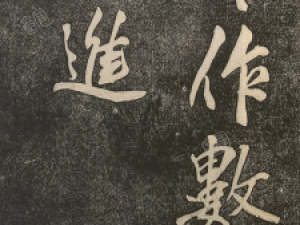 作數
進